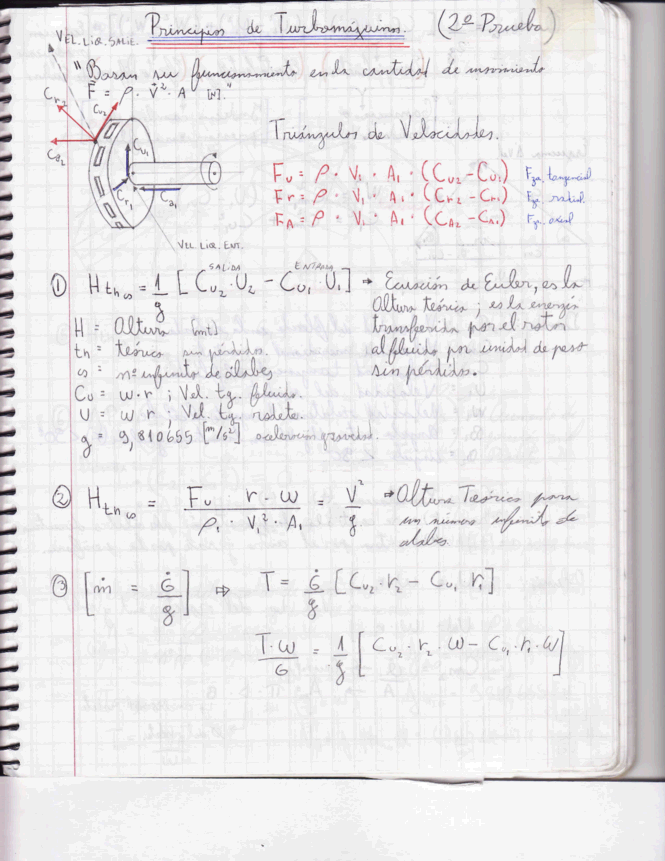 Principios de Turbomáquinas. (2º Prueba)
VEL. LIQ. SALIE.
"Basan su funcionamiento en la cantidad de movimiento
F = ρ · V² · A [N]."
Cr₂
Cu₂
Ca₂
Cu₁
Cr₁
Ca₁
VEL LIQ. ENT.
Triángulos de Velocidades.
Fu = ρ · V₁ · A₁ · (Cu₂ – Cu₁) Fza. tangencial
Fr = ρ · V₁ · A₁ · (Cr₂ – Cr₁) Fza. radial
FA = ρ · V₁ · A₁ · (CA₂ – CA₁) Fza. axial
SALIDA ENTRADA
① H th∞ = 1/g [Cu₂ · U₂ – Cu₁ · U₁] → Ecuación de Euler, es la
Altura teórica; es la energía
transferida por el rotor
al fluido por unidad de peso
sin pérdidas.
H = Altura [mt]
th = teórica sin pérdidas.
∞ = nº infinito de álabes
Cu = w·r ; Vel. tg. fluido.
U = w r ; Vel. tg. rodete.
g = 9,810655 [m/s²] aceleración gravedad.
② H th∞ = Fu · r · ω / ρ₁ · V₁² · A₁ = V²/g → Altura Teórica para
un número infinito de
alabes
③ [ṁ = Ġ/g] ⇒ T = Ġ/g [Cu₂ · r₂ – Cu₁ r₁]
T·ω/G = 1/g [Cu₂ · r₂ · ω – Cu₁ · r₁ · ω]